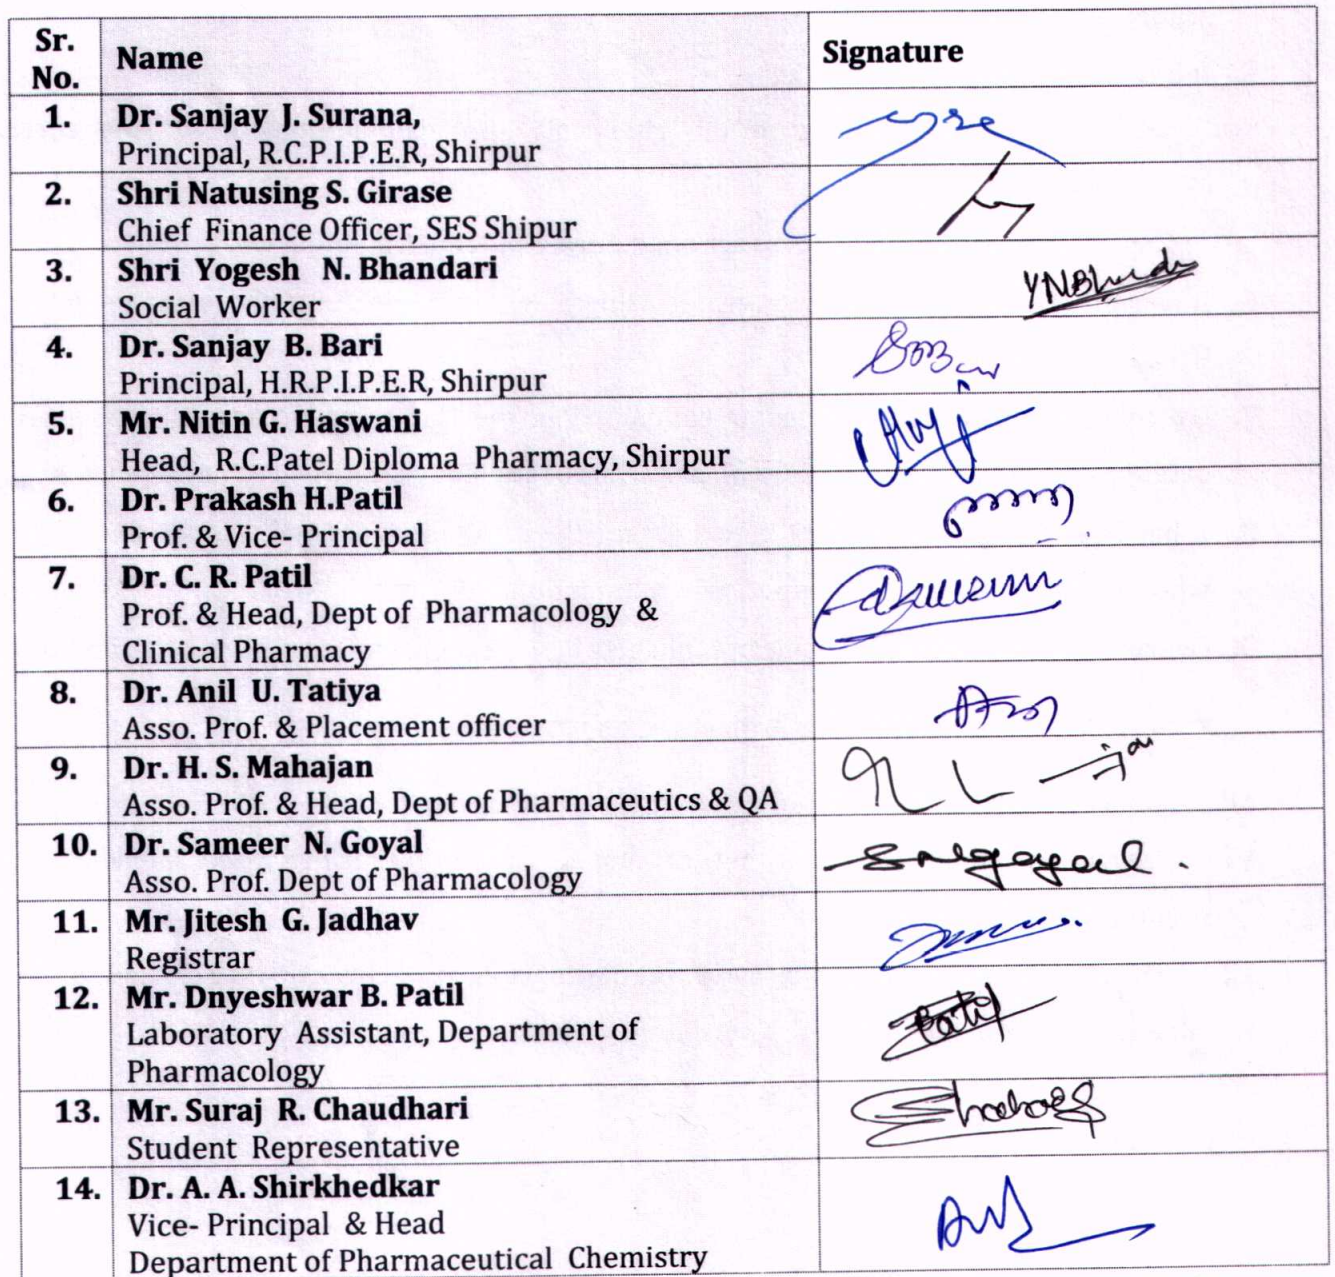 Sr. No. Name Signature
1. Dr. Sanjay J. Surana,
Principal, R.C.P.I.P.E.R, Shirpur
2. Shri Natusing S. Girase
Chief Finance Officer, SES Shipur
3. Shri Yogesh N. Bhandari
Social Worker
4. Dr. Sanjay B. Bari
Principal, H.R.P.I.P.E.R, Shirpur
5. Mr. Nitin G. Haswani
Head, R.C.Patel Diploma Pharmacy, Shirpur
6. Dr. Prakash H.Patil
Prof. & Vice- Principal
7. Dr. C. R. Patil
Prof. & Head, Dept of Pharmacology &
Clinical Pharmacy
8. Dr. Anil U. Tatiya
Asso. Prof. & Placement officer
9. Dr. H. S. Mahajan
Asso. Prof. & Head, Dept of Pharmaceutics & QA
10. Dr. Sameer N. Goyal
Asso. Prof. Dept of Pharmacology
11. Mr. Jitesh G. Jadhav
Registrar
12. Mr. Dnyeshwar B. Patil
Patil
Laboratory Assistant, Department of
Pharmacology
13. Mr. Suraj R. Chaudhari
Student Representative
14. Dr. A. A. Shirkhedkar
Vice- Principal & Head
Department of Pharmaceutical Chemistry